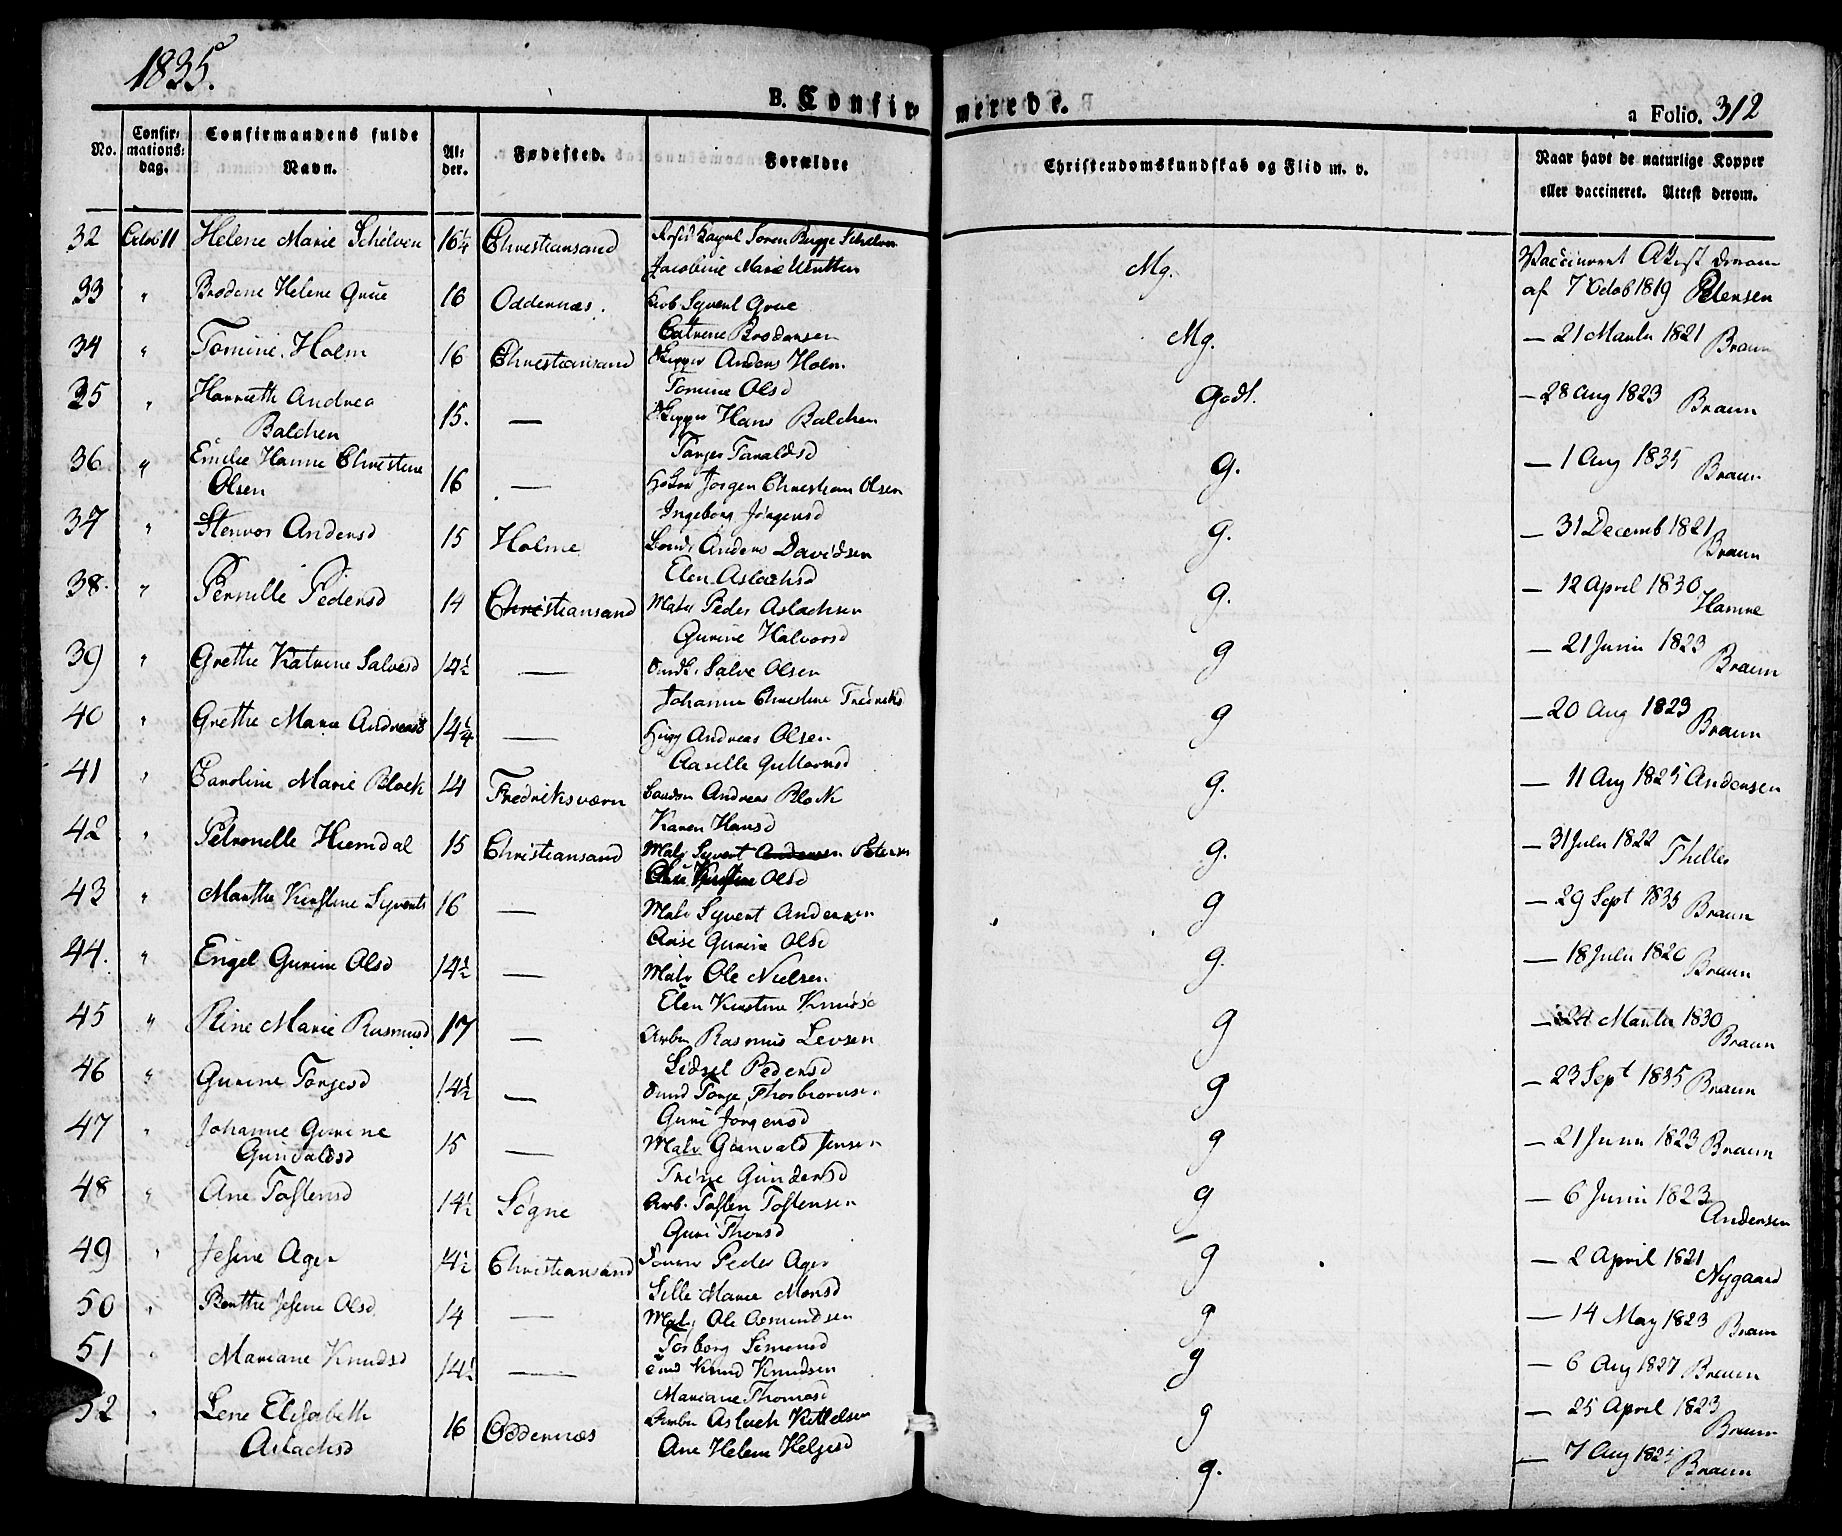 1835.
B. Confirmerede.
a Folio. 312
No. Confirmations: dag. Confirmandens fulde Navn. Alder. Fødested. Forældre Christendomskundskab og Flid m. v. Naar havt de naturlige Kopper eller vaccineret. Attest derom.
32 Octob 11 Helene Marie Schelven 16¼ Christiansand Søren Bugge Schelven Mg. Vaccineret Attest derom
Jacobine Marie af 7 Octob 1819 Petersen
33 " Brodene Helene Grue 16 Oddernæs. Syvert Grue Mg. — 21 Martii 1821 Braun
Catrine Brodersen
34 " Tomine Holm 16 Christiansand Skipper Anders Holm Godt. — 28 Aug 1823 Braun
Tomine Olsd
35 " Harrieth Andrea 15. — Skipper Hans Balchen g. — 1 Aug 1835 Braun
Balchen Tarald
36 " Emilie Hanne Christine 16 — Jørgen Christian Olsen g. — 31 Decemb 1821 Braun
Olsen Ingeborg Jørgensd
37 " Stenvor Andersd 15 Holme Anders Davidsen g. — 12 April 1830 Hanne
Elen Aslachsd
38. " Pernille Pedersd 14 Christiansand Matr Peder Aslachsen g — 21 Junii 1823 Braun
Gurine Halvorsd
39 " Grethe Katrine Salvesd 14½ — Salve Olsen g — 20 Aug 1823 Braun
Johanne Christine Fredriksd
40 " Grethe Marie Andreasd 14¼ — Andreas Olsen g. — 11 Aug 1825 Andersen
Guttormsd
41 " Caroline Marie Block 14 Fredriksværn Andreas Block g. — 31 Julii 1822
Karen Hansd
42 " Petronelle Hiemdal 15 Christiansand Matr Syvert Andersen Petersen g — 29 Sept 1835 Braun
Olsd
43 " Marthe Kirstine Syverts 16 — Matr Syvert Andersen g. — 18 Julii 1820 Braun
Anne Gurine Olsd
44. " Engel Gurine Olsd 14½ — Matr Ole Nielsen g — 24 Martii 1830 Braun
Elen Kirstine Knudsd
45 " Rine Marie Rasmusd 17 — Arbm Rasmus Levsen g — 23 Sept 1835 Braun
Sidsel Pedersd
46 " Gurine Torjesd 14½ — Torje Thorbiornsen g — 21 Junii 1823 Braun
Guri Jørgensd
47 " Johanne Gurine 15 — Matr Gunvald Jensen g — 6 Junii 1823 Andersen
Gunvaldsd Trine Gundersd
48 " Ane Tostensd 14½ Søgne Arb. Tosten Tostensen g — 2 April 1821 Nygaard
Guri Thorsd
49 " Jesine Ager 14½ Christiansand Peder Ager g — 14 May 1823 Braun
Sille Marie Monsd
50 " Berthe Jesine Olsd 14 — Matr Ole Asmundsen g — 6 Aug 1827 Braun
Torborg Simonsd
51 " Mariane Knudsd 14½ — Knud Knudsen g — 25 April 1823 Braun
Mariane Thomasd
52 " Lene Elisabeth 16 Oddernæs Arbm Aslach Kittelsen g. — 7 Aug 182 Braun
Aslachsd Ane Helene Helgesd